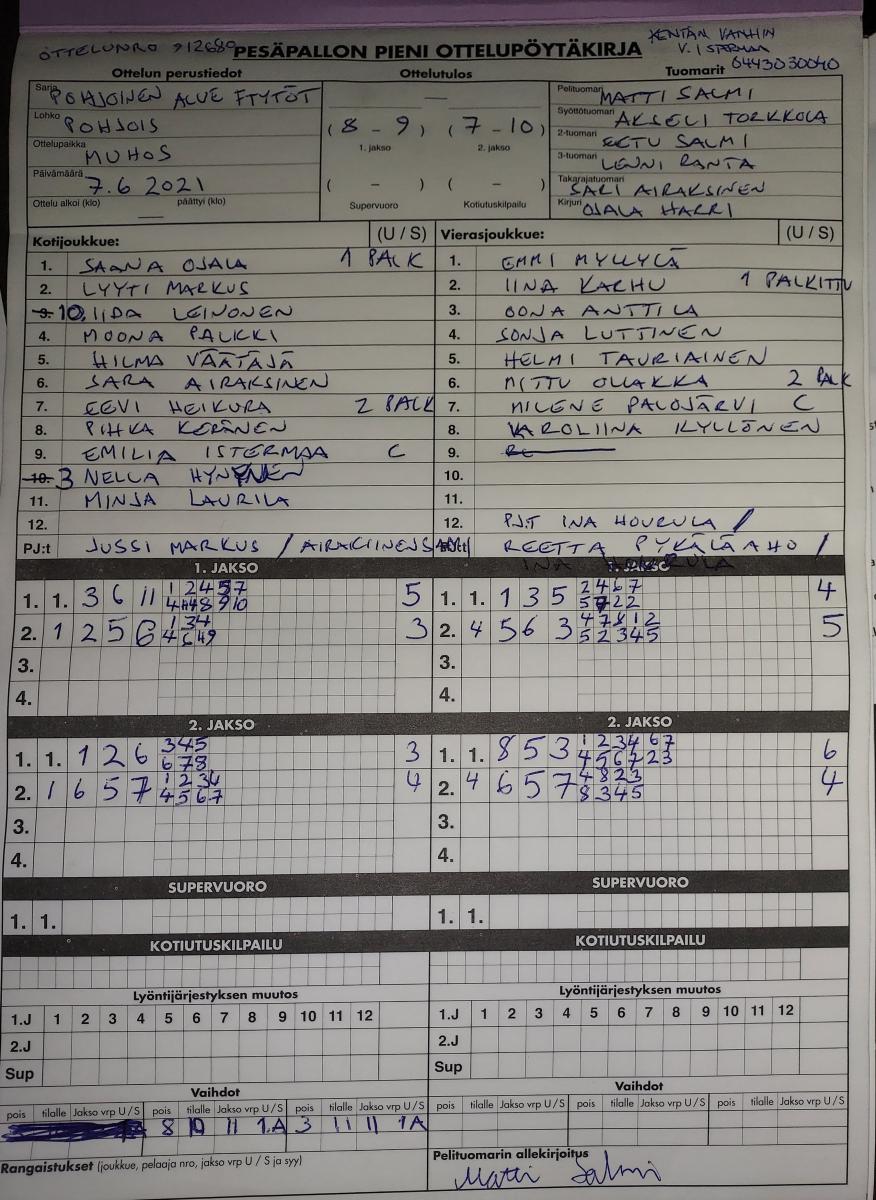 OTTELUNRO 912680 PESÄPALLON PIENI OTTELUPÖYTÄKIRJA KENTÄN VANHIN
V. ISTERMAA
0443030040
Ottelun perustiedot Ottelutulos Tuomarit
Sarja POHJOINEN ALUE FTYTÖT
Lohko POHJOIS
Ottelupaikka MUHOS
Päivämäärä 7.6 2021
Ottelu alkoi (klo) — päättyi (klo)
—
(8 - 9) (7 - 10)
1. jakso 2. jakso
( - ) ( - )
Supervuoro Kotiutuskilpailu
Pelituomari MATTI SALMI
Syöttötuomari AKSELI TORKKOLA
2-tuomari EETU SALMI
3-tuomari LENNI RANTA
Takarajatuomari SARI AIRAKSINEN
Kirjuri OJALA HARRI
Kotijoukkue: (U / S)
1. SAANA OJALA 1 PALK
2. LYYTI MARKUS
9. 10. IIDA LEINONEN
4. MOONA PALKKI
5. HILMA VÄÄTÄJÄ
6. SARA AIRAKSINEN
7. EEVI HEIKURA 2 PALK
8. PIHKA KERÄNEN
9. EMILIA ISTERMAA C
10. 3 NELLA HYNYNEN
11. MINJA LAURILA
12.
PJ:t JUSSI MARKUS / AIRAKSINEN SAMI
Vierasjoukkue: (U / S)
1. EMMI MYLLYLÄ
2. IINA KARHU 1 PALKITTU
3. OONA ANTTILA
4. SONJA LUTTINEN
5. HELMI TAURIAINEN
6. MITTU OLLAKKA 2 PALK
7. MILENE PALOJÄRVI C
8. KAROLIINA KYLLÖNEN
9.
10.
11.
12. PJ:T INA HOURULA /
PJ:t REETTA PYKÄLÄAHO /
1. JAKSO
1. 1. 3 6 11 1 2 4 5 7 5
4 8 9 10
2. 1 2 5 6 1 3 4 3
4 6 9
3.
4.
1. JAKSO
1. 1. 1 3 5 2 4 6 7 4
5 7 2 2
2. 4 5 6 3 4 7 8 1 2 5
5 2 3 4 5
3.
4.
2. JAKSO
1. 1. 1 2 6 3 4 5 3
6 7 8
2. 1 6 5 7 1 2 3 4 4
4 5 6 7
3.
4.
2. JAKSO
1. 1. 8 5 3 1 2 3 4 6 7 6
4 5 6 7 2 3
2. 4 6 5 7 4 8 2 3 4
8 3 4 5
3.
4.
SUPERVUORO SUPERVUORO
1. 1. 1. 1.
KOTIUTUSKILPAILU KOTIUTUSKILPAILU
Lyöntijärjestyksen muutos Lyöntijärjestyksen muutos
1.J 1 2 3 4 5 6 7 8 9 10 11 12 1.J 1 2 3 4 5 6 7 8 9 10 11 12
2.J 2.J
Sup Sup
Vaihdot Vaihdot
pois tilalle Jakso vrp U / S pois tilalle Jakso vrp U / S pois tilalle Jakso vrp U / S pois tilalle Jakso vrp U / S pois tilalle Jakso vrp U / S pois tilalle Jakso vrp U / S
8 10 11 1A 3 11 11 1A
Rangaistukset (joukkue, pelaaja nro, jakso vrp U / S ja syy) Pelituomarin allekirjoitus
Matti Salmi